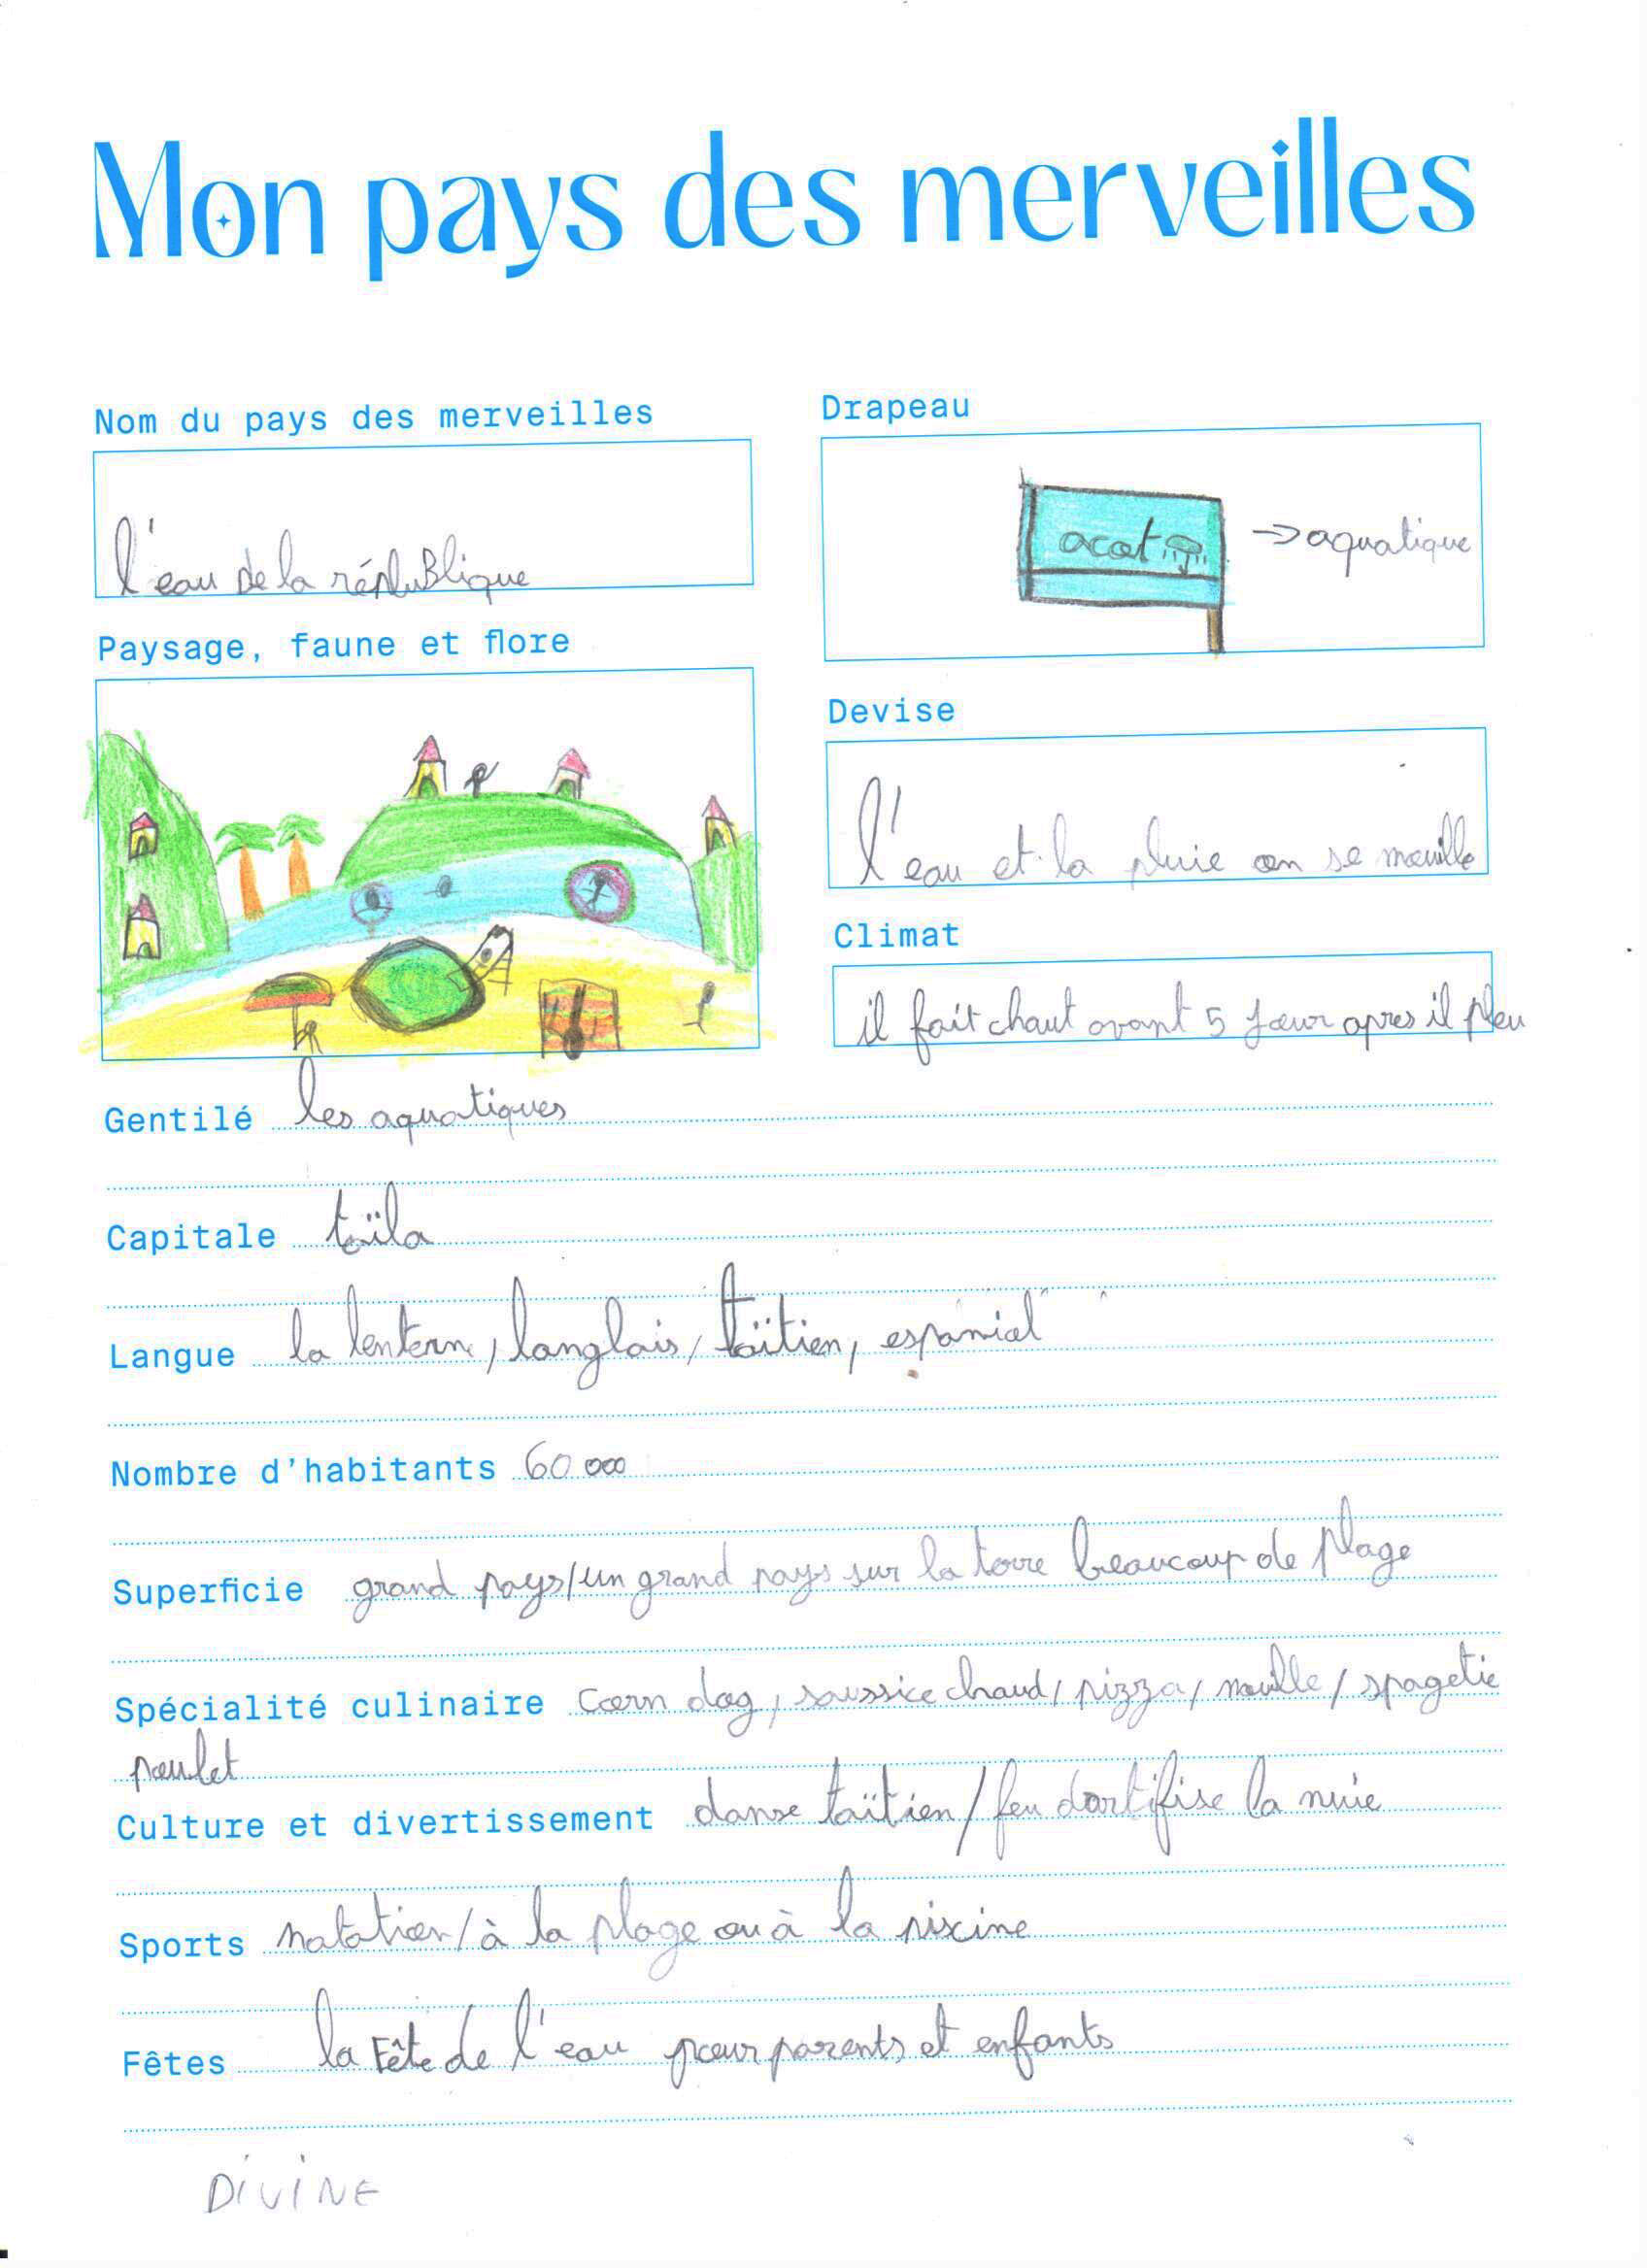 Mon pays des merveilles
Nom du pays des merveilles
l'eau de la républuBlique
Drapeau
acat
→ aquatique
Paysage, faune et flore
Devise
l'eau et la pluie on se mouille
Climat
il fait chaut avant 5 jour apres il pleu
Gentilé les aquatiques
Capitale taïla
Langue la lentern, langlais, taïtien, espaniol
Nombre d'habitants 60 000
Superficie grand pays/un grand pays sur la terre beaucoup de plage
Spécialité culinaire corn dog, saussice chaud, pizza, nouille / spagetie
poulet
Culture et divertissement danse taïtien / feu dartifise la nuie
Sports natation / à la plage ou à la piscine
Fêtes la Fête de l'eau pour parents et enfants
DIVINE